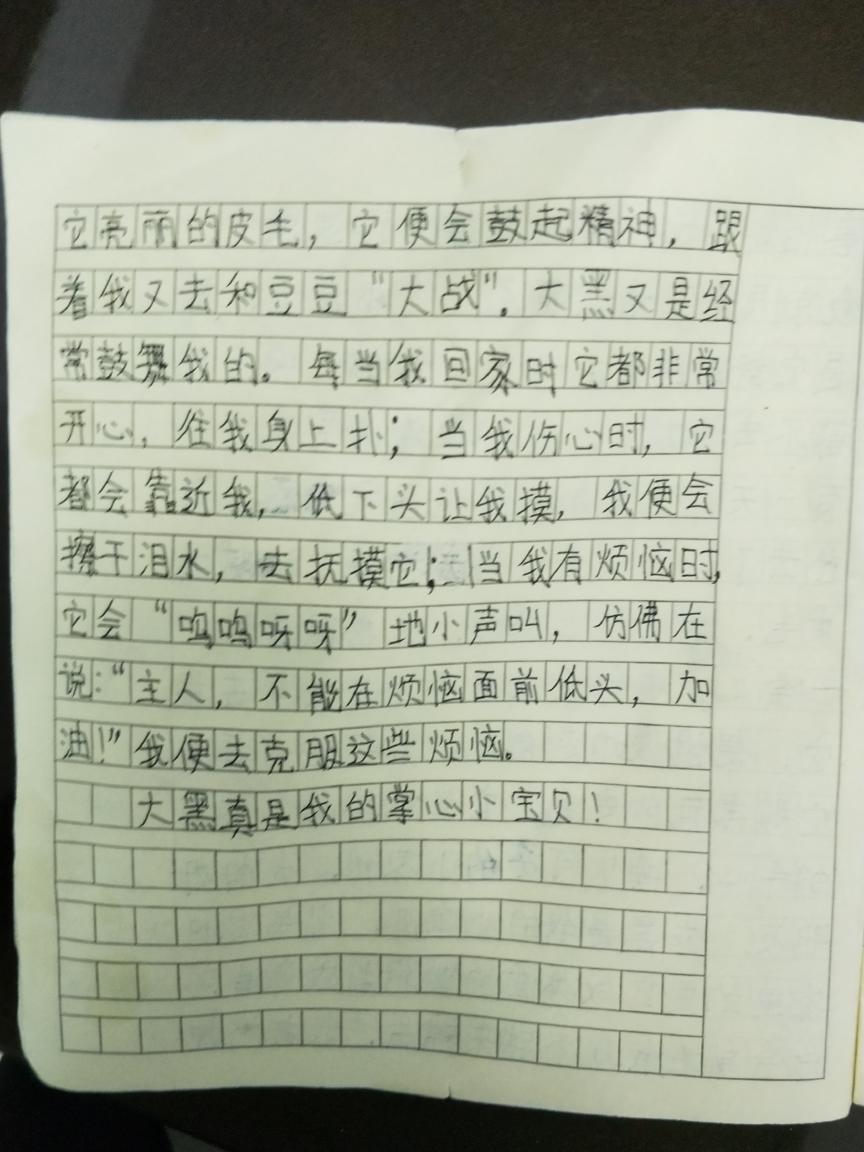 它亮丽的皮毛，它便会鼓起精神，跟
着我又去和豆豆“大战”。大黑又是经
常鼓舞我的。每当我回家时它都非常
开心，往我身上扑；当我伤心时，它
都会靠近我，低下头让我摸，我便会
擦干泪水，去抚摸它；当我有烦恼时，
它会“呜呜呀呀”地小声叫，仿佛在
说：“主人，不能在烦恼面前低头，加
油！”我便去克服这些烦恼。
大黑真是我的掌心小宝贝！